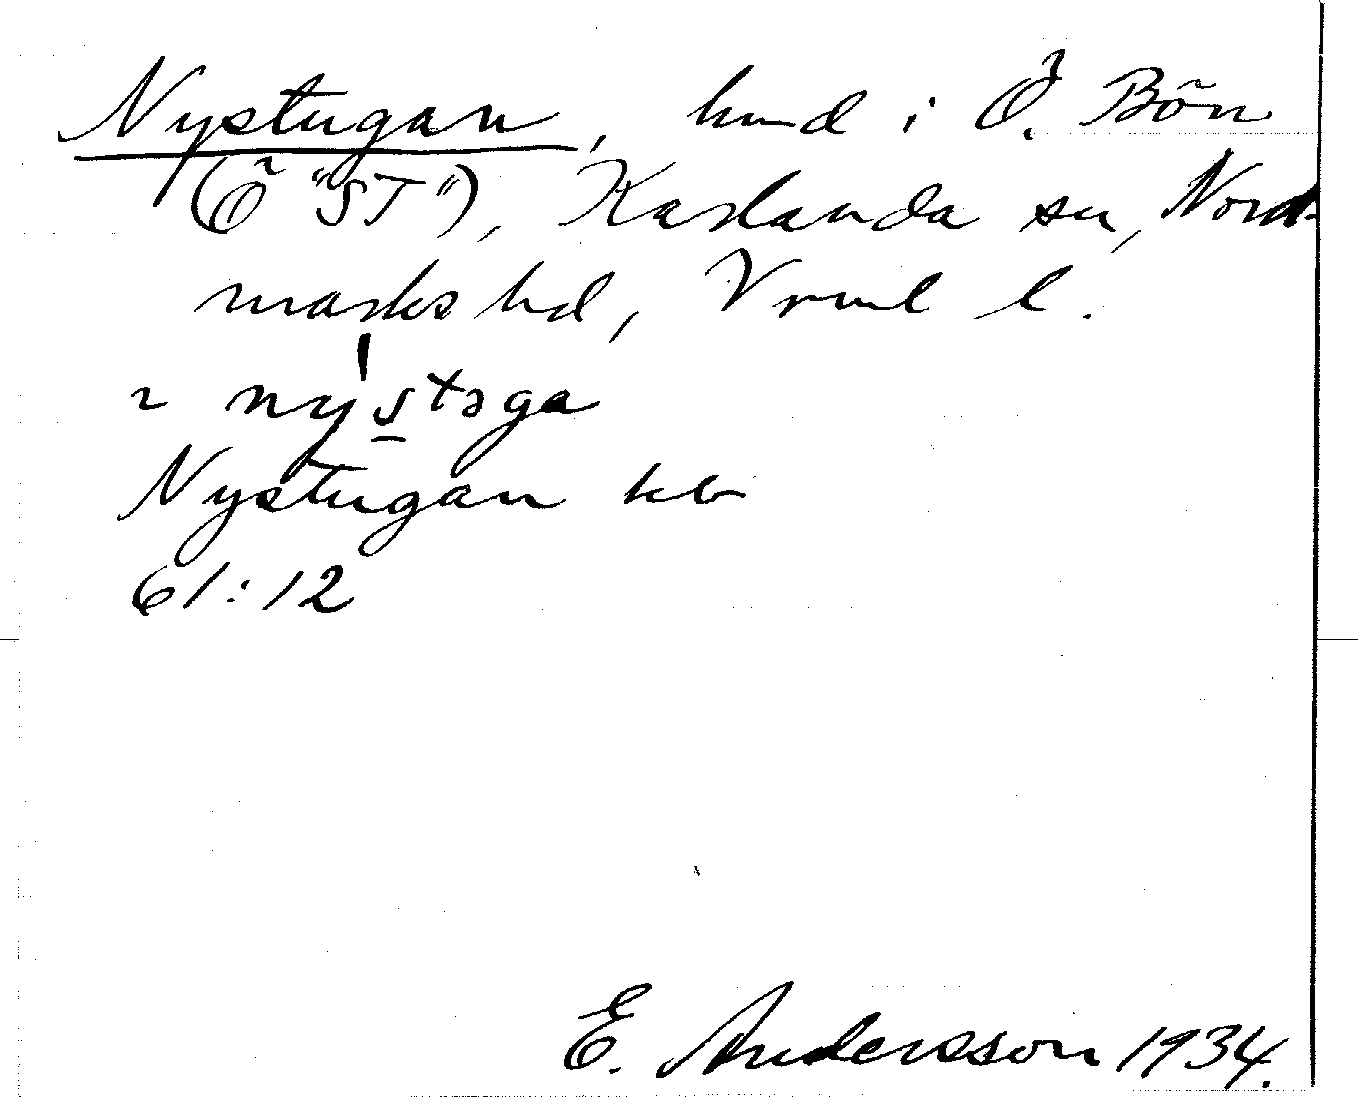 Nystugan, hmd i Ö. Bön
(Ö "ST"), Karlanda sn, Nord-
marks hd, Vrml l.
~ ny's̲təga
Nystugan kb
61:12
E. Andersson 1934.